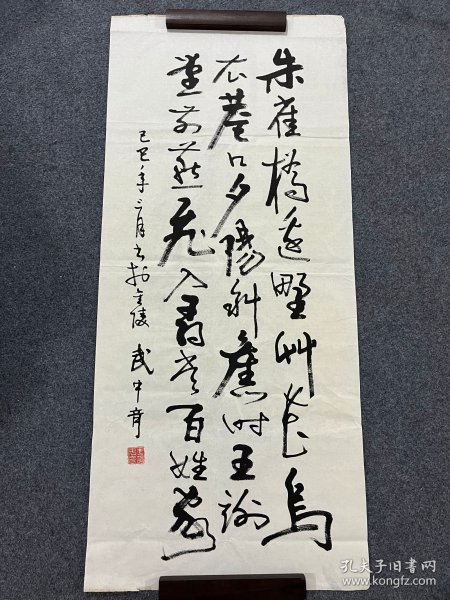 朱雀橋邊野艸花烏
衣巷口夕陽斜舊时王謝
堂前燕飛入尋常百姓家
己巳年三月书於金陵 武中奇
孔夫子旧书网
www.kongfz.com